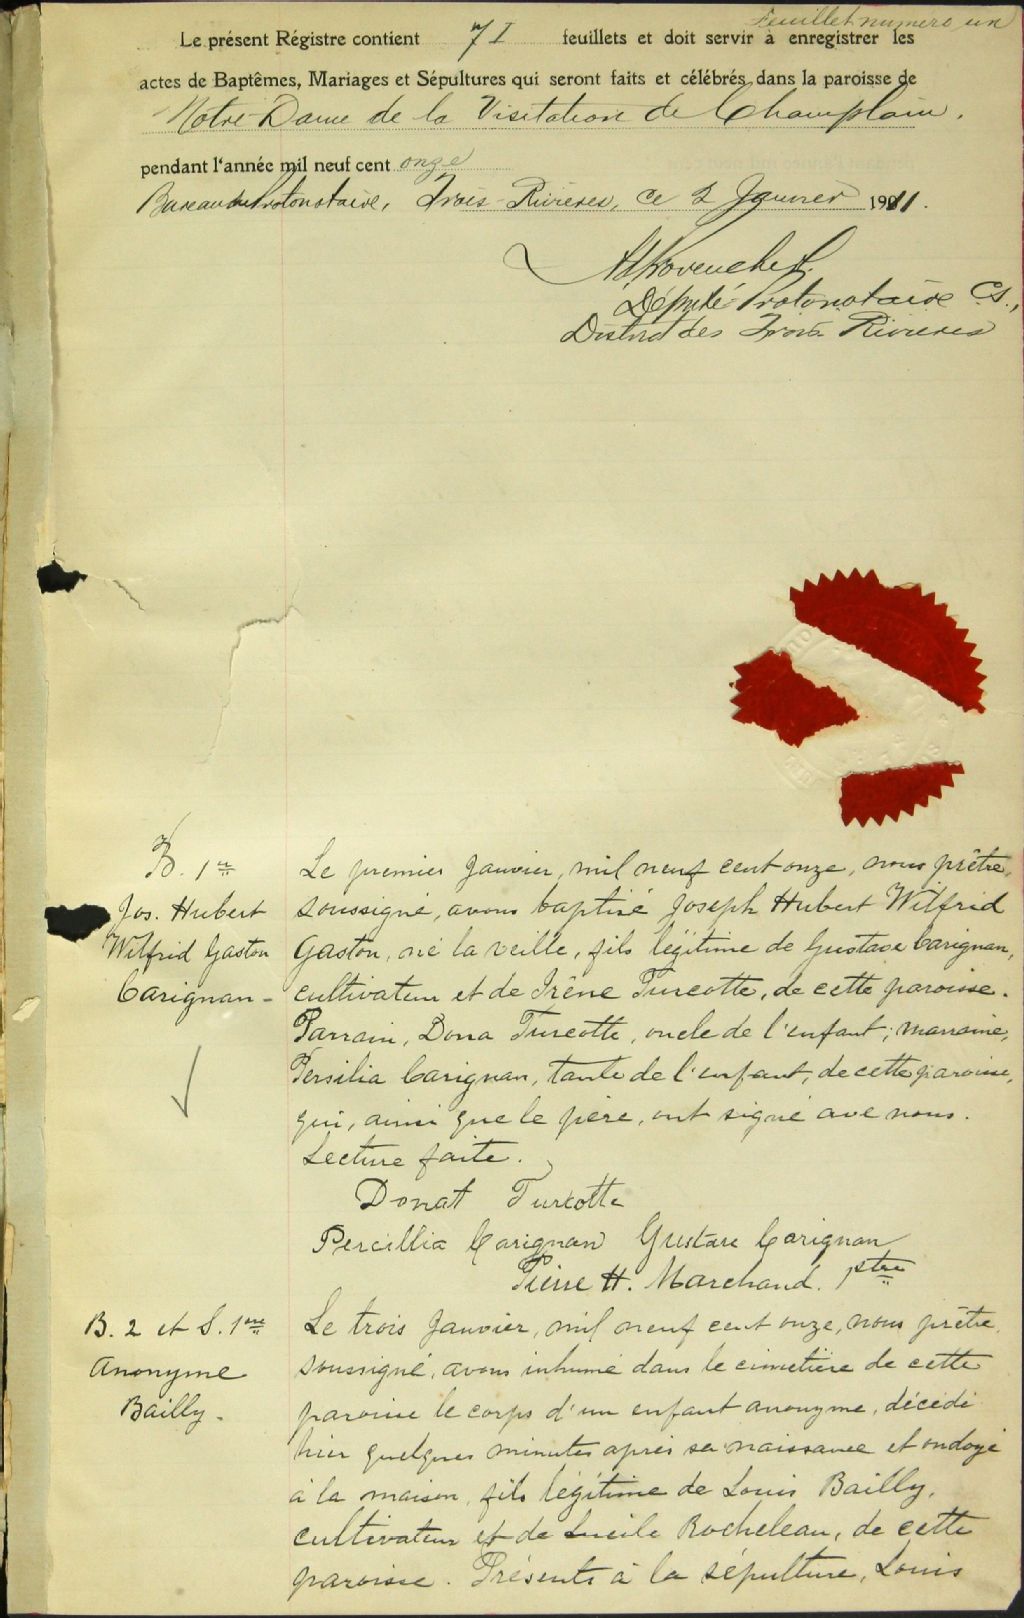 Feuillet numero un
Le présent Régistre contient 71 feuillets et doit servir à enregistrer les
actes de Baptêmes, Mariages et Sépultures qui seront faits et célébrés dans la paroisse de
Notre Dame de la Visitation de Champlain.
pendant l'année mil neuf cent onze
Bureau du Protonotaire, Trois-Rivières, ce 2 Janvier 1911.
Député-Protonotaire C.S.,
District des Trois Rivieres
B. 1er
Jos. Hubert
Wilfrid Gaston
Carignan -
Le premier Janvier, mil neuf cent onze, nous prêtre,
soussigné, avons baptisé Joseph Hubert Wilfrid
Gaston, né la veille, fils légitime de Gustave Carignan,
cultivateur et de Irène Turcotte, de cette paroisse.
Parrain, Dona Turcotte, oncle de l'enfant; marraine,
Persilia Carignan, tante de l'enfant, de cette paroisse,
qui, ainsi que le père, ont signé ave nous.
Lecture faite.
Donat Turcotte
Percillia Carignan Gustave Carignan
Pierre H. Marchand. Ptre
B. 2 et S. 1ère
Anonyme
Bailly.
Le trois Janvier, mil neuf cent onze, nous prêtre
soussigné, avons inhumé dans le cimetière de cette
paroisse le corps d'un enfant anonyme, décédé
hier quelques minutes après sa naissance et ondoyé
à la maison, fils légitime de Louis Bailly,
cultivateur et de Lucile Rocheleau, de cette
paroisse. Présents à la sépulture, Louis